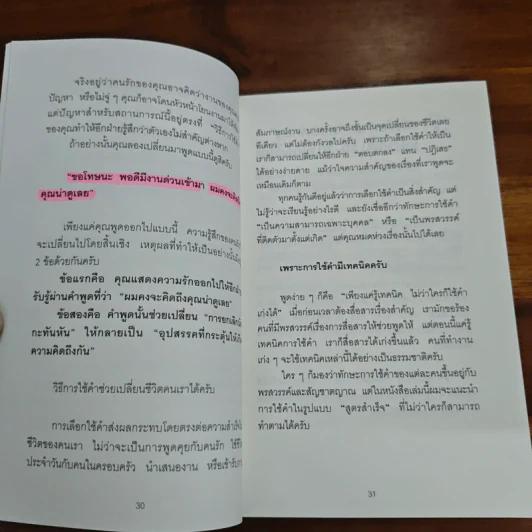 จริงอยู่ว่าคนรักของคุณอาจคิดว่างานของคุณ
ปัญหา หรือไม่จู่ ๆ คุณก็อาจโดนหัวหน้าโยนงานมาให้
แต่ปัญหาสำหรับสถานการณ์นี้อยู่ตรงที่ "วิธีการใช้
ของคุณทำให้อีกฝ่ายรู้สึกว่าตัวเองไม่สำคัญต่างหาก
ถ้าอย่างนั้นคุณลองเปลี่ยนมาพูดแบบนี้ดูสิครับ
"ขอโทษนะ พอดีมีงานด่วนเข้ามา ผมคงจะคิดถึง
คุณน่าดูเลย"
เพียงแค่คุณพูดออกไปแบบนี้ ความรู้สึกของ
จะเปลี่ยนไปโดยสิ้นเชิง เหตุผลที่ทำให้เป็นอย่างนั้น
2 ข้อด้วยกันครับ
ข้อแรกคือ คุณแสดงความรักออกไปให้อีกฝ่าย
รับรู้ผ่านคำพูดที่ว่า "ผมคงจะคิดถึงคุณน่าดูเลย"
ข้อสองคือ คำพูดนั้นช่วยเปลี่ยน "การยกเลิกนัด
กะทันหัน" ให้กลายเป็น "อุปสรรคที่กระตุ้นให้
ความคิดถึงกัน"
วิธีการใช้คำช่วยเปลี่ยนชีวิตคนเราได้ครับ
การเลือกใช้คำส่งผลกระทบโดยตรงต่อความสำเร็จ
ชีวิตของคนเรา ไม่ว่าจะเป็นการพูดคุยกับคนรัก ใช้ชีวิต
ประจำวันกับคนในครอบครัว นำเสนองาน หรือเข้ารับการ
30
สัมภาษณ์งาน บางครั้งอาจถึงขั้นเป็นจุดเปลี่ยนของชีวิตเลย
ทีเดียว แต่ไม่ต้องกังวลไปครับ เพราะถ้าเลือกใช้คำให้เป็น
เราก็สามารถเปลี่ยนให้อีกฝ่าย "ตอบตกลง" แทน "ปฏิเสธ"
ได้อย่างง่ายดาย แม้ว่าใจความสำคัญของเรื่องที่เราพูดจะ
เหมือนเดิมก็ตาม
ทุกคนรู้กันดีอยู่แล้วว่าการใช้คำเป็นสิ่งสำคัญ แต่
ไม่รู้ว่าจะเรียนรู้อย่างไรดี และยังเชื่ออีกว่าทักษะการใช้คำ
"เป็นความสามารถเฉพาะบุคคล" หรือ "เป็นพรสวรรค์
ที่ติดตัวมาตั้งแต่เกิด" แต่คุณหมดห่วงเรื่องนั้นไปได้เลย
เพราะการใช้คำมีเทคนิคครับ
พูดง่าย ๆ ก็คือ "เพียงแค่รู้เทคนิค ไม่ว่าใครก็ใช้คำ
เก่งได้" เมื่อก่อนเวลาต้องสื่อสารเรื่องสำคัญ เรามักขอร้อง
คนที่มีพรสวรรค์เรื่องการสื่อสารให้ช่วยพูดให้ แต่ตอนนี้แค่รู้
เทคนิคการใช้คำ เราก็สื่อสารได้เก่งขึ้นแล้ว คนที่ทำงาน
เก่ง ๆ จะใช้เทคนิคเหล่านี้ได้อย่างเป็นธรรมชาติครับ
ใคร ๆ ก็มองว่าทักษะการใช้คำของแต่ละคนขึ้นอยู่กับ
พรสวรรค์และสัญชาตญาณ แต่ในหนังสือเล่มนี้ผมจะแนะนำ
การใช้คำในรูปแบบ "สูตรสำเร็จ" ที่ไม่ว่าใครก็สามารถ
ทำตามได้ครับ
31